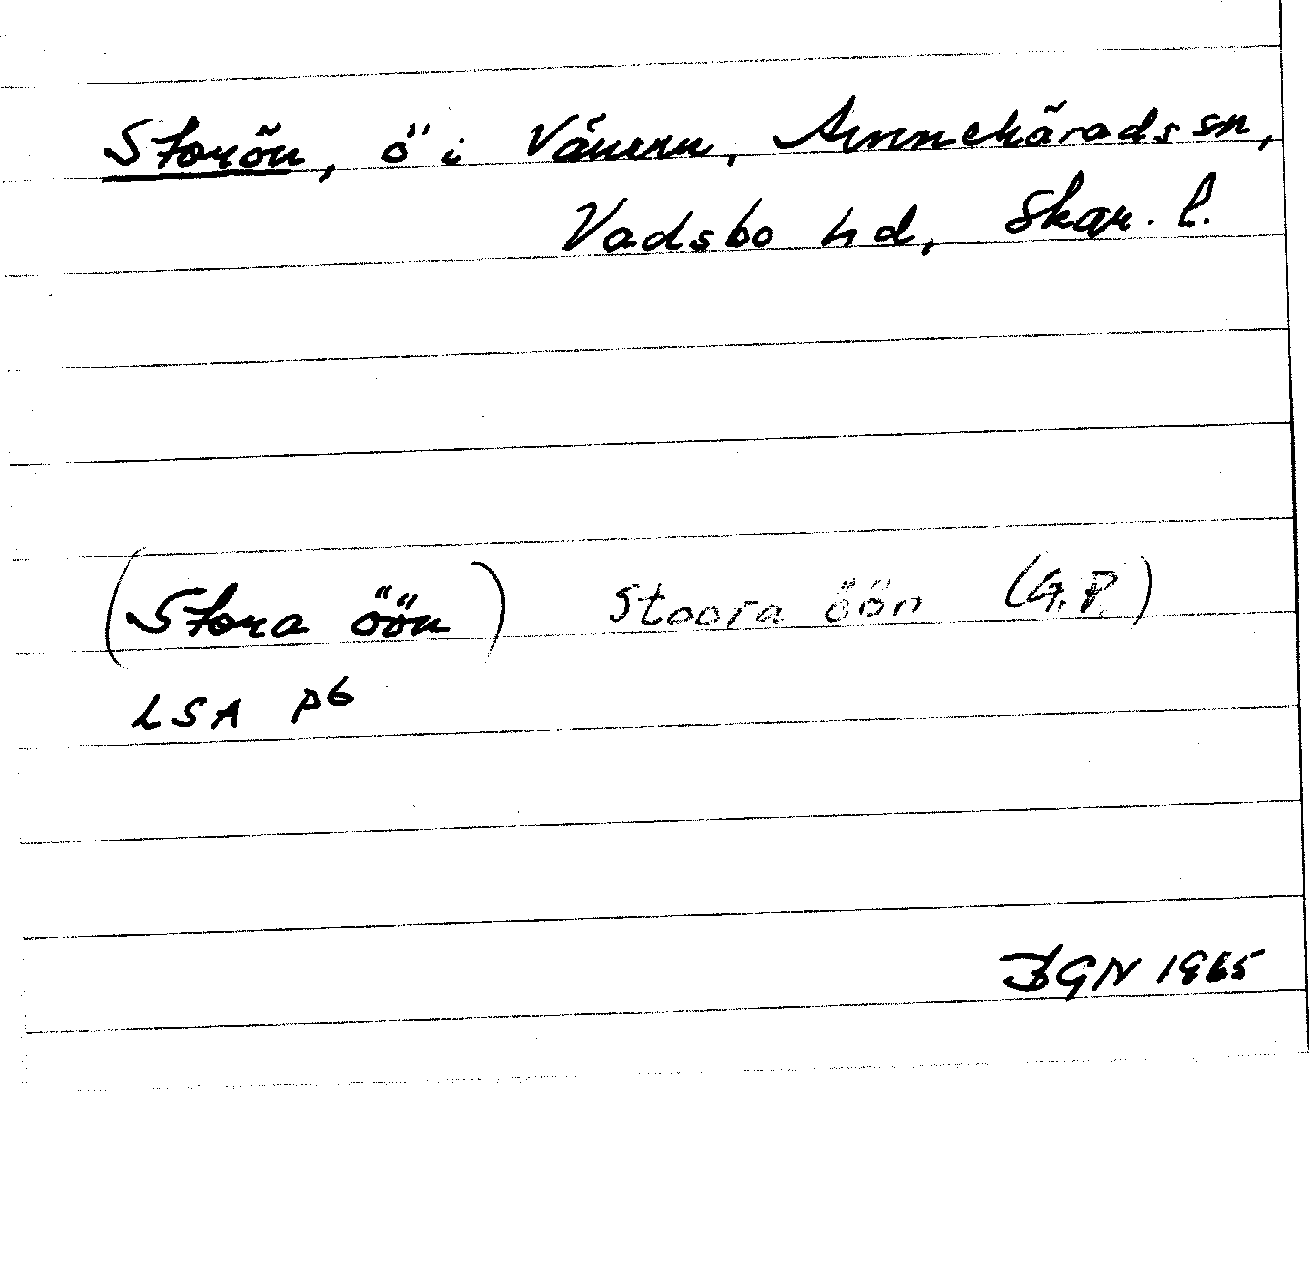 Storön, ö i Vänern, Amnehärads sn,
Vadsbo hd, Skar. l.
(Stora öön) Stoora öön (G.P.)
LSA P6
BGN 1965